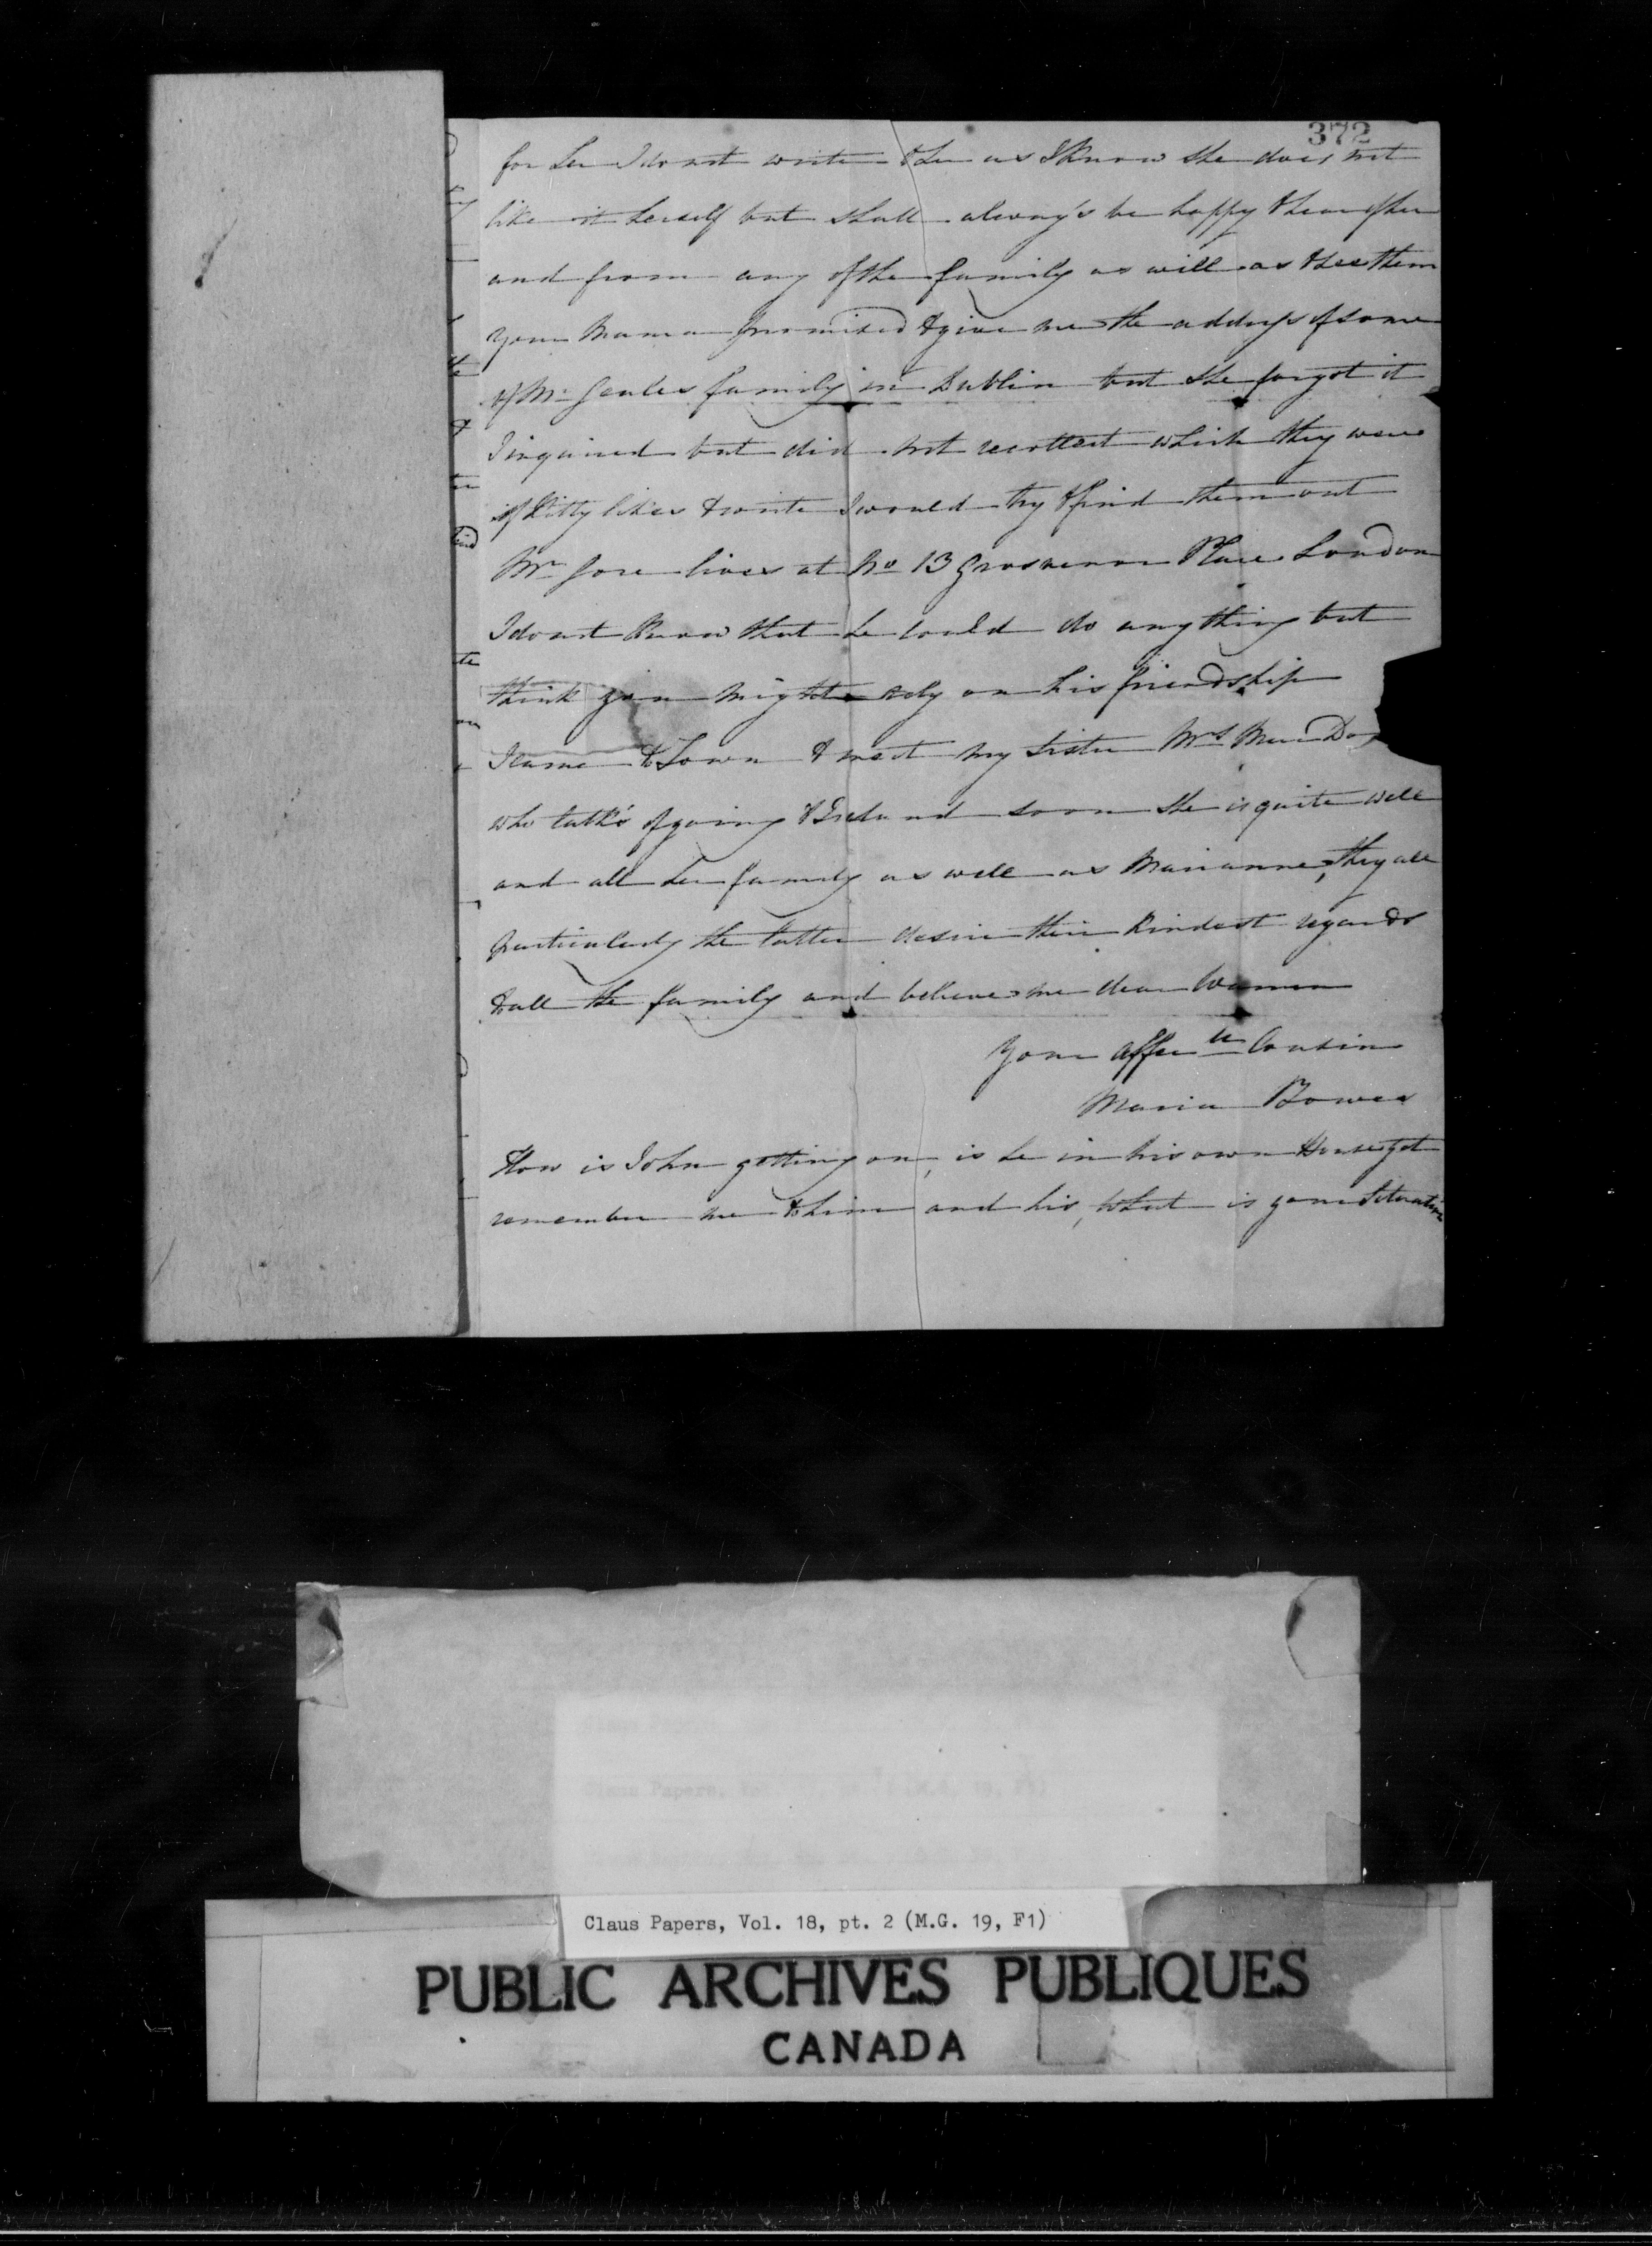 372
for her I do not write to her as I know she does not
like it herself but shall alway's be happy to hear of her
and from any of the family as will as to see them
your Mama promised to give me the address of some
of Mr family in Dublin but she forgot it
I inquired but did not recollect which they were
if Kitty likes to write I would try to find them out
Mr Gore lives at No 13 Grosvenor Place London
I do not know that he could do any thing but
think you might rely on his friendship
I came to Town to meet my Sister Mrs
who talk's of going to Ireland soon she is quite well
and all her family as well as Marianne, they all
particularly the latter desire their kindest regards
to all the family and believe me dear Warren
your affecte Cousin
Maria Bowes
How is John getting on, is he in his own House yet
remember me to him and his, what is your Situation
Claus Papers, Vol. 18, pt. 2 (M.G. 19, F1)
PUBLIC ARCHIVES PUBLIQUES
CANADA